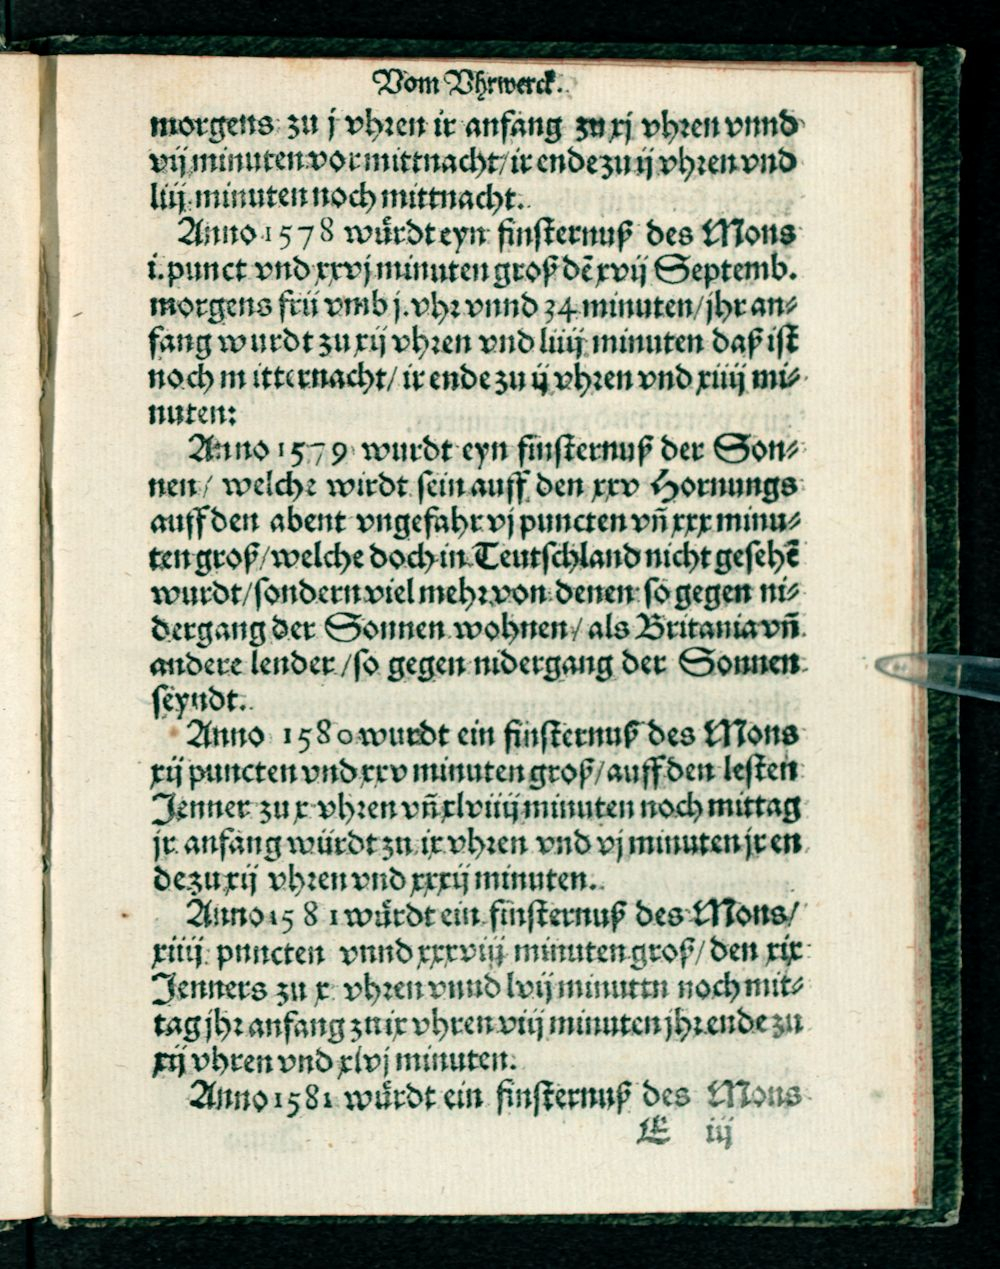 Vom Vhrwerck.
morgens zu j vhren ir anfang zu xj vhren vnnd
vij minuten vor mittnacht/ ir ende zu ij vhren vnd
liij minuten noch mittnacht.
Anno 1578 wuͤrdt eyn finsternuß des Mons
i. punct vnd xxvj minuten groß dẽ xvij Septemb.
morgens frü vmb j. vhr vnnd 34 minuten/ jhr an⸗
fang wurdt zu xij vhren vnd liiij minuten daß ist
noch mitternacht/ ir ende zu ij vhren vnd xiiij mi⸗
nuten:
Anno 1579 wurdt eyn finsternuß der Son⸗
nen/ welche wirdt sein auff den xxv Hornungs
auff den abent vngefahr vj puncten vñ xxx minu⸗
ten groß/ welche doch in Teutschland nicht gesehẽ
wurdt/ sondern viel mehr von denen so gegen ni⸗
dergang der Sonnen wohnen/ als Britania vñ
andere lender/ so gegen nidergang der Sonnen
seyndt.
Anno 1580 wurdt ein finsternuß des Mons
xij puncten vnd xxv minuten groß/ auff den lesten
Jenner zu x vhren vñ xlviiij minuten noch mittag
jr anfang würdt zu ix vhren vnd vj minuten jr en
de zu xij vhren vnd xxxij minuten.
Anno 1581 wuͤrdt ein finsternuß des Mons/
xiiij puncten vnnd xxxviij minuten groß/ den xix
Jenners zu x vhren vnnd lvij minuttn noch mit⸗
tag jhr anfang zu ix vhren viij minuten jhr ende zu
xij vhren vnd xlvj minuten.
Anno 1581 wuͤrdt ein finsternuß des Mons
E iij